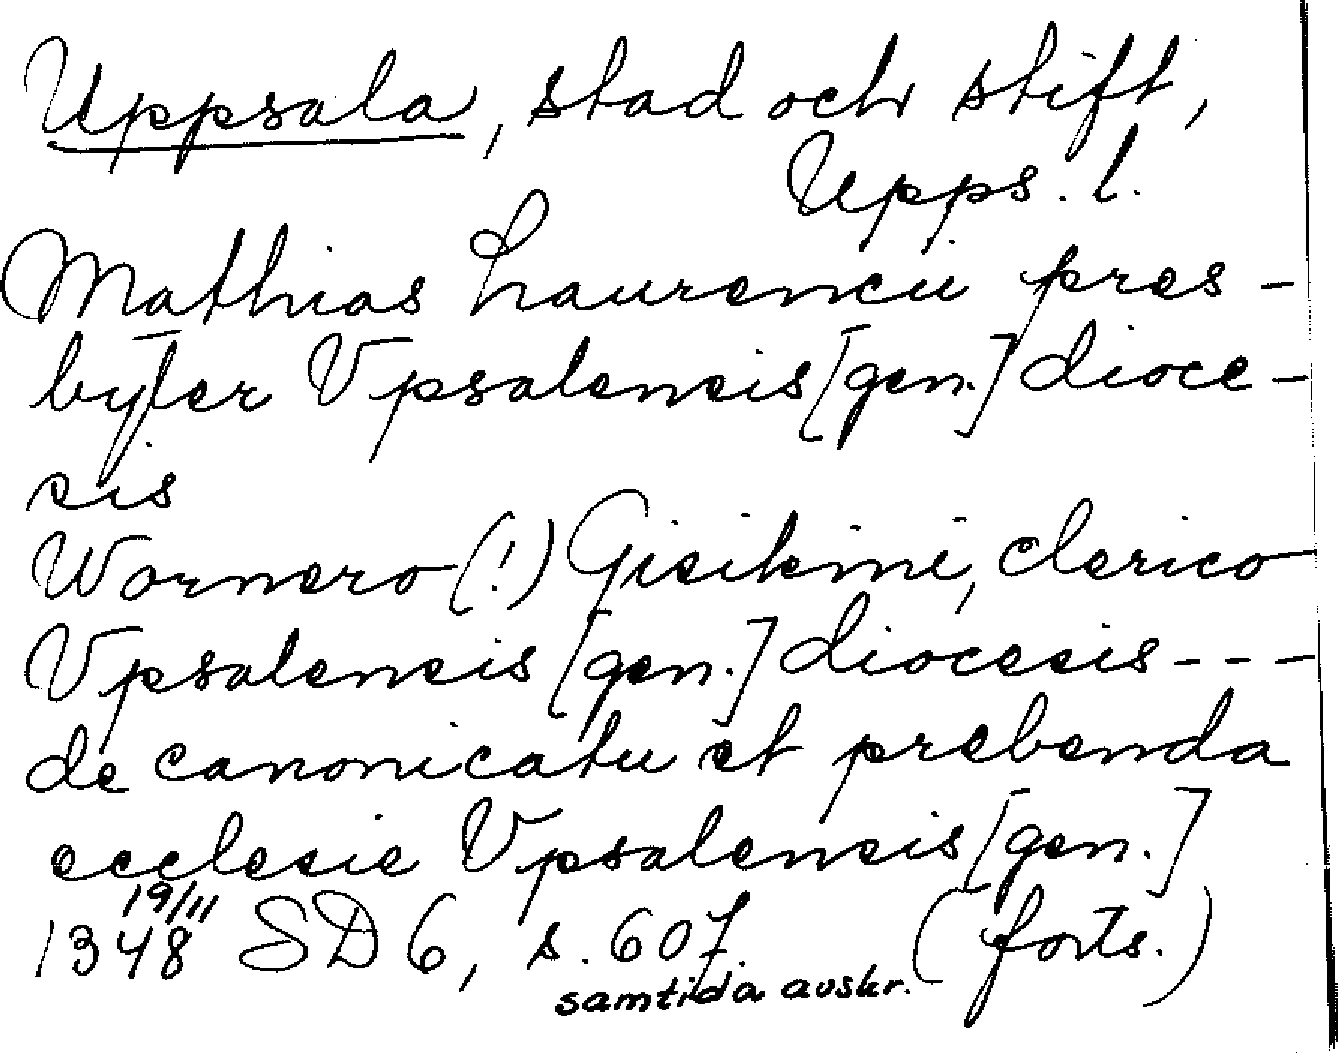 Uppsala, stad och stift,
Upps. l.
Mathias Laurencii pres-
byter Vpsalensis [gen.] dioce-
sis
Wornero (!) Gisikini, clerico
Vpsalensis [gen.] diocesis ---
de canonicatu et prebenda
ecclesie Vpsalensis [gen.]
19/11
1348 SD 6, s. 607. (forts.)
samtida avskr.